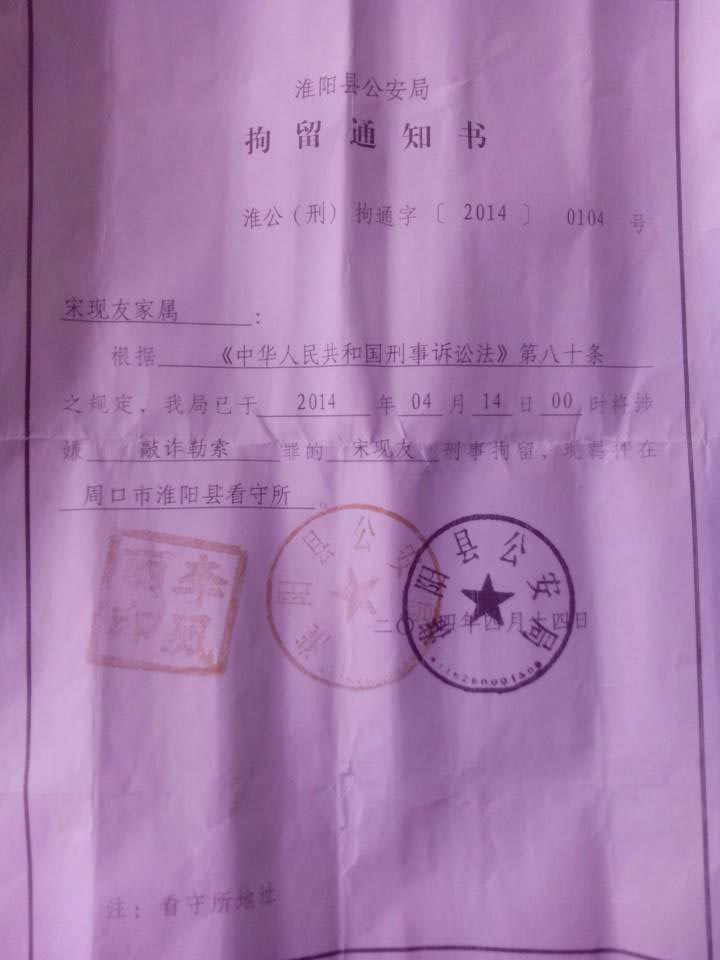 淮阳县公安局
拘留通知书
淮公（刑）拘通字〔 2014 〕 0104 号
宋现友家属 ：
根据 《中华人民共和国刑事诉讼法》第八十条
之规定，我局已于 2014 年 04 月 14 日 00 时将涉
嫌 敲诈勒索 罪的 宋现友 刑事拘留，现羁押在
周口市淮阳县看守所 。
淮阳县公安局
淮阳县公安局
二〇一四年四月十四日
注：看守所地址